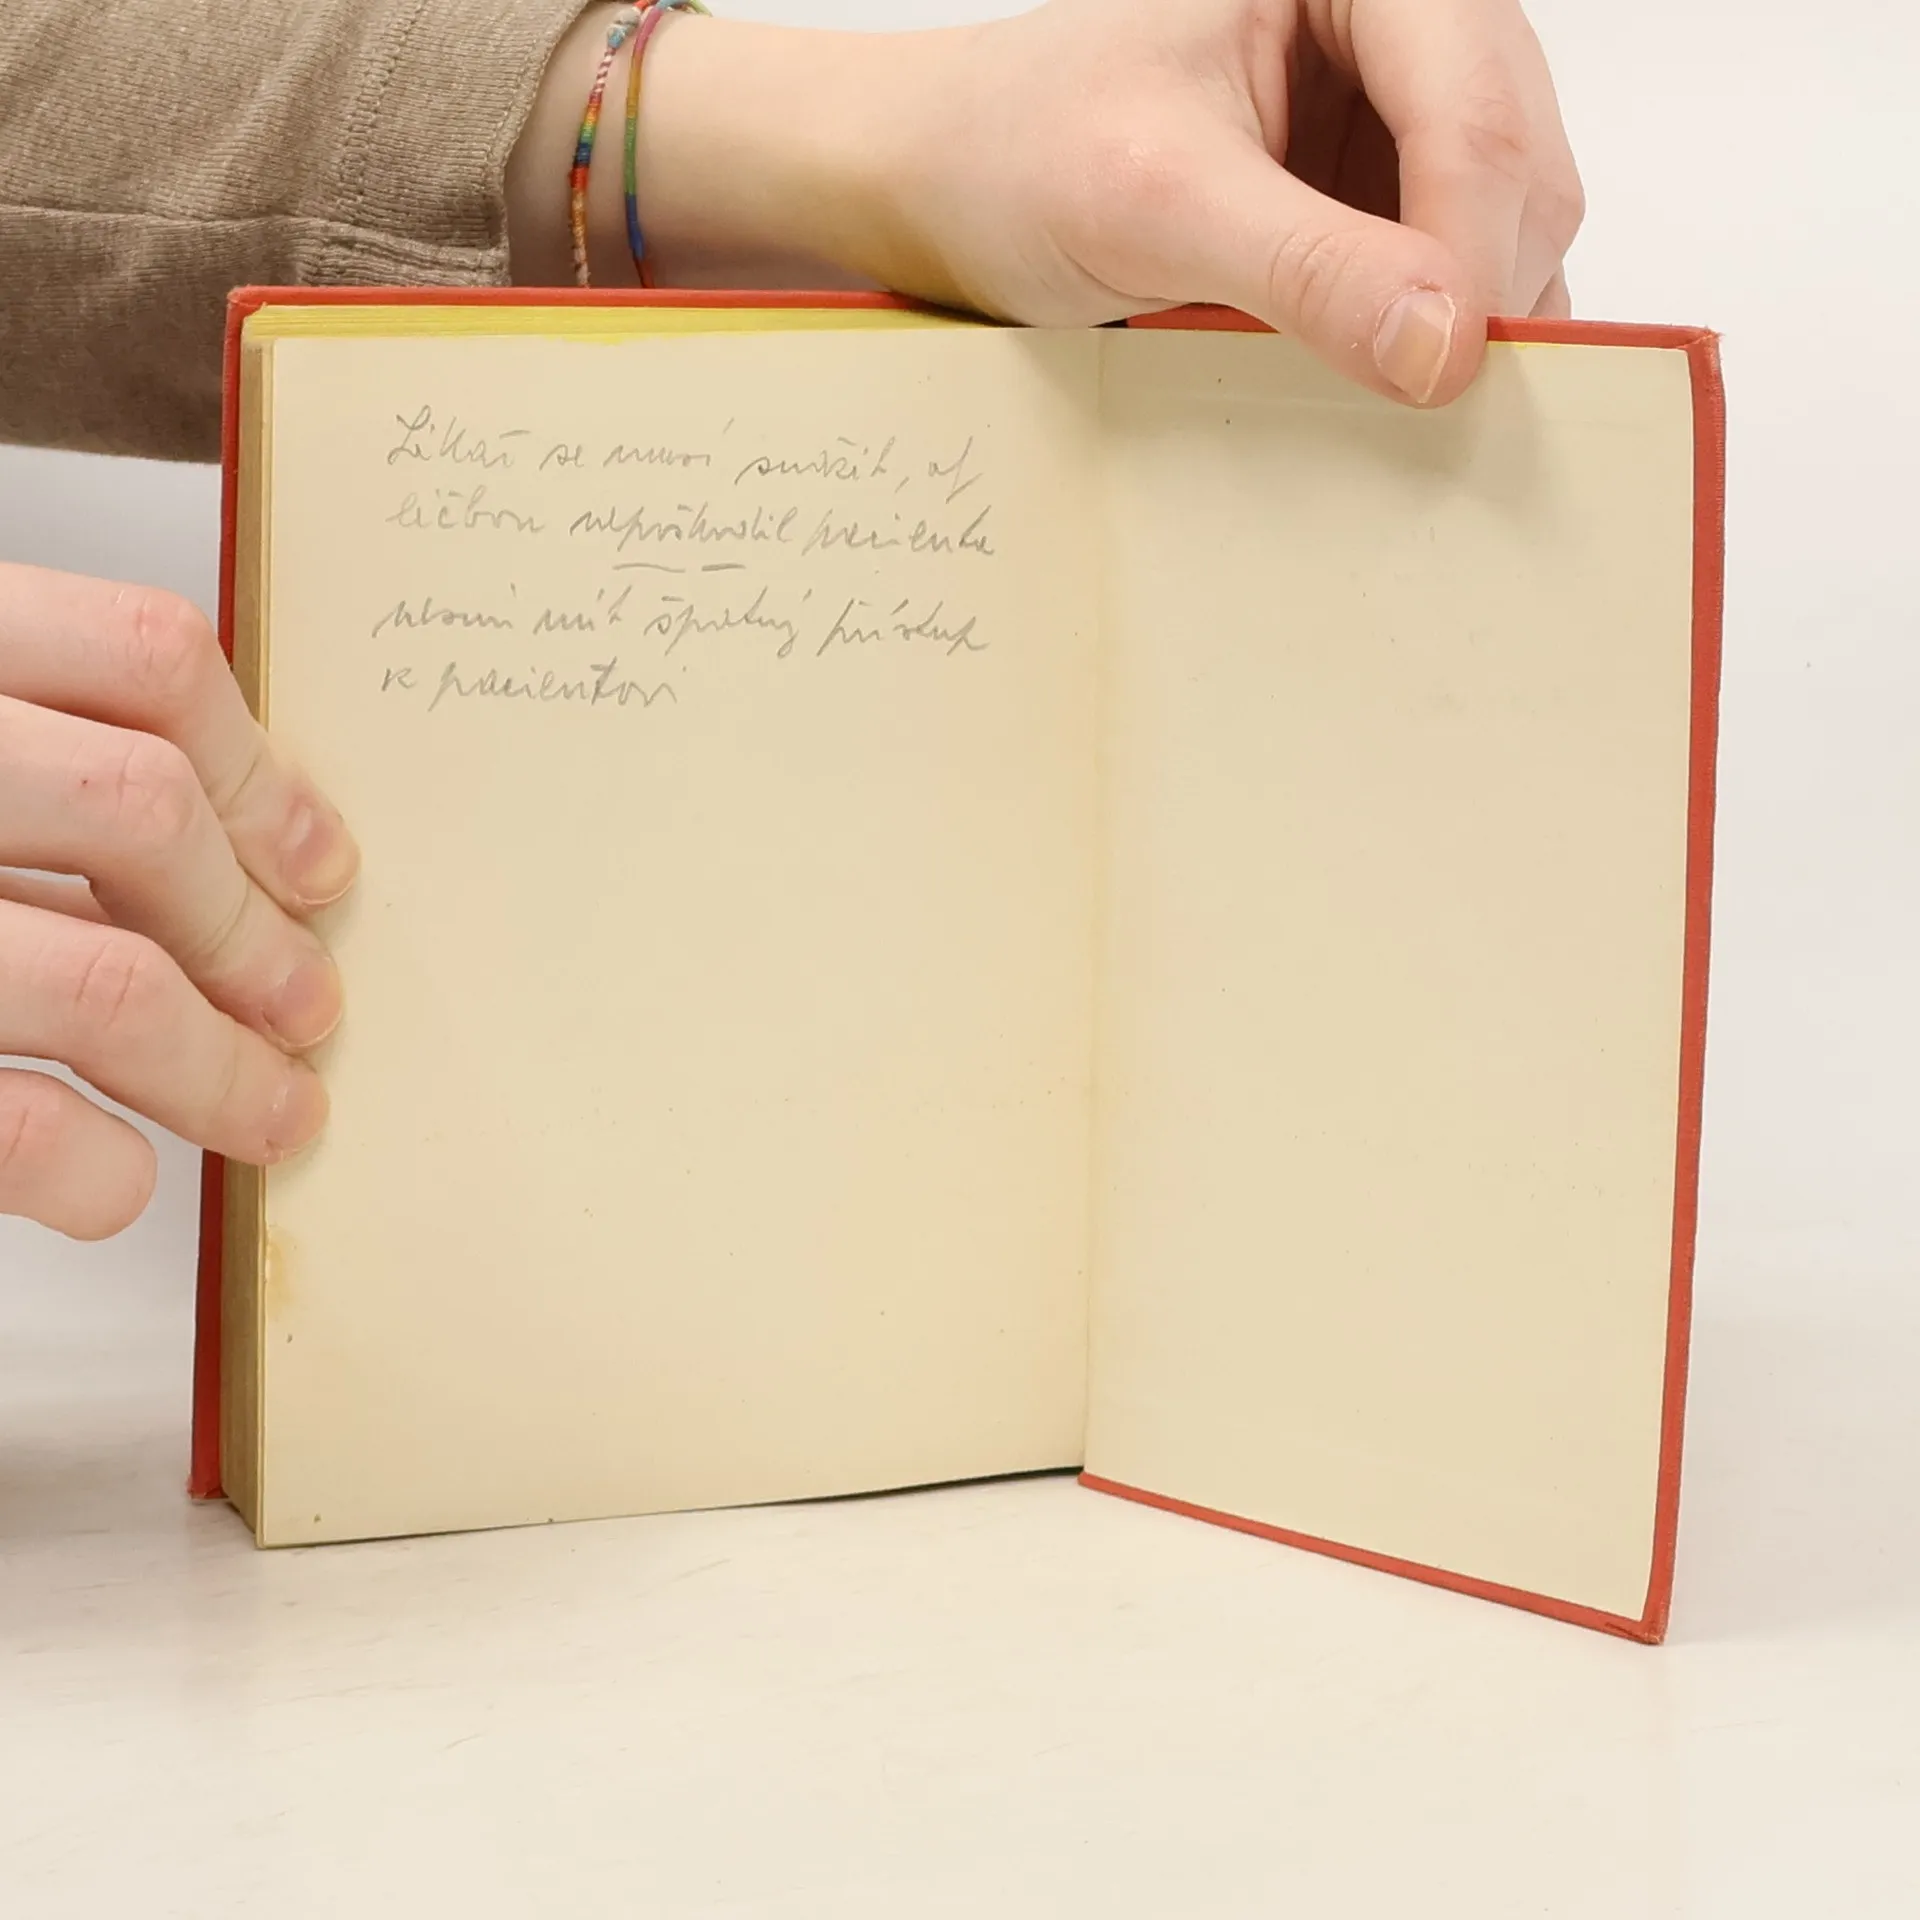 Lékař se musí snažit, ať
léčbou nepoškodil pacienta
nesmí mít špatný přístup
k pacientovi